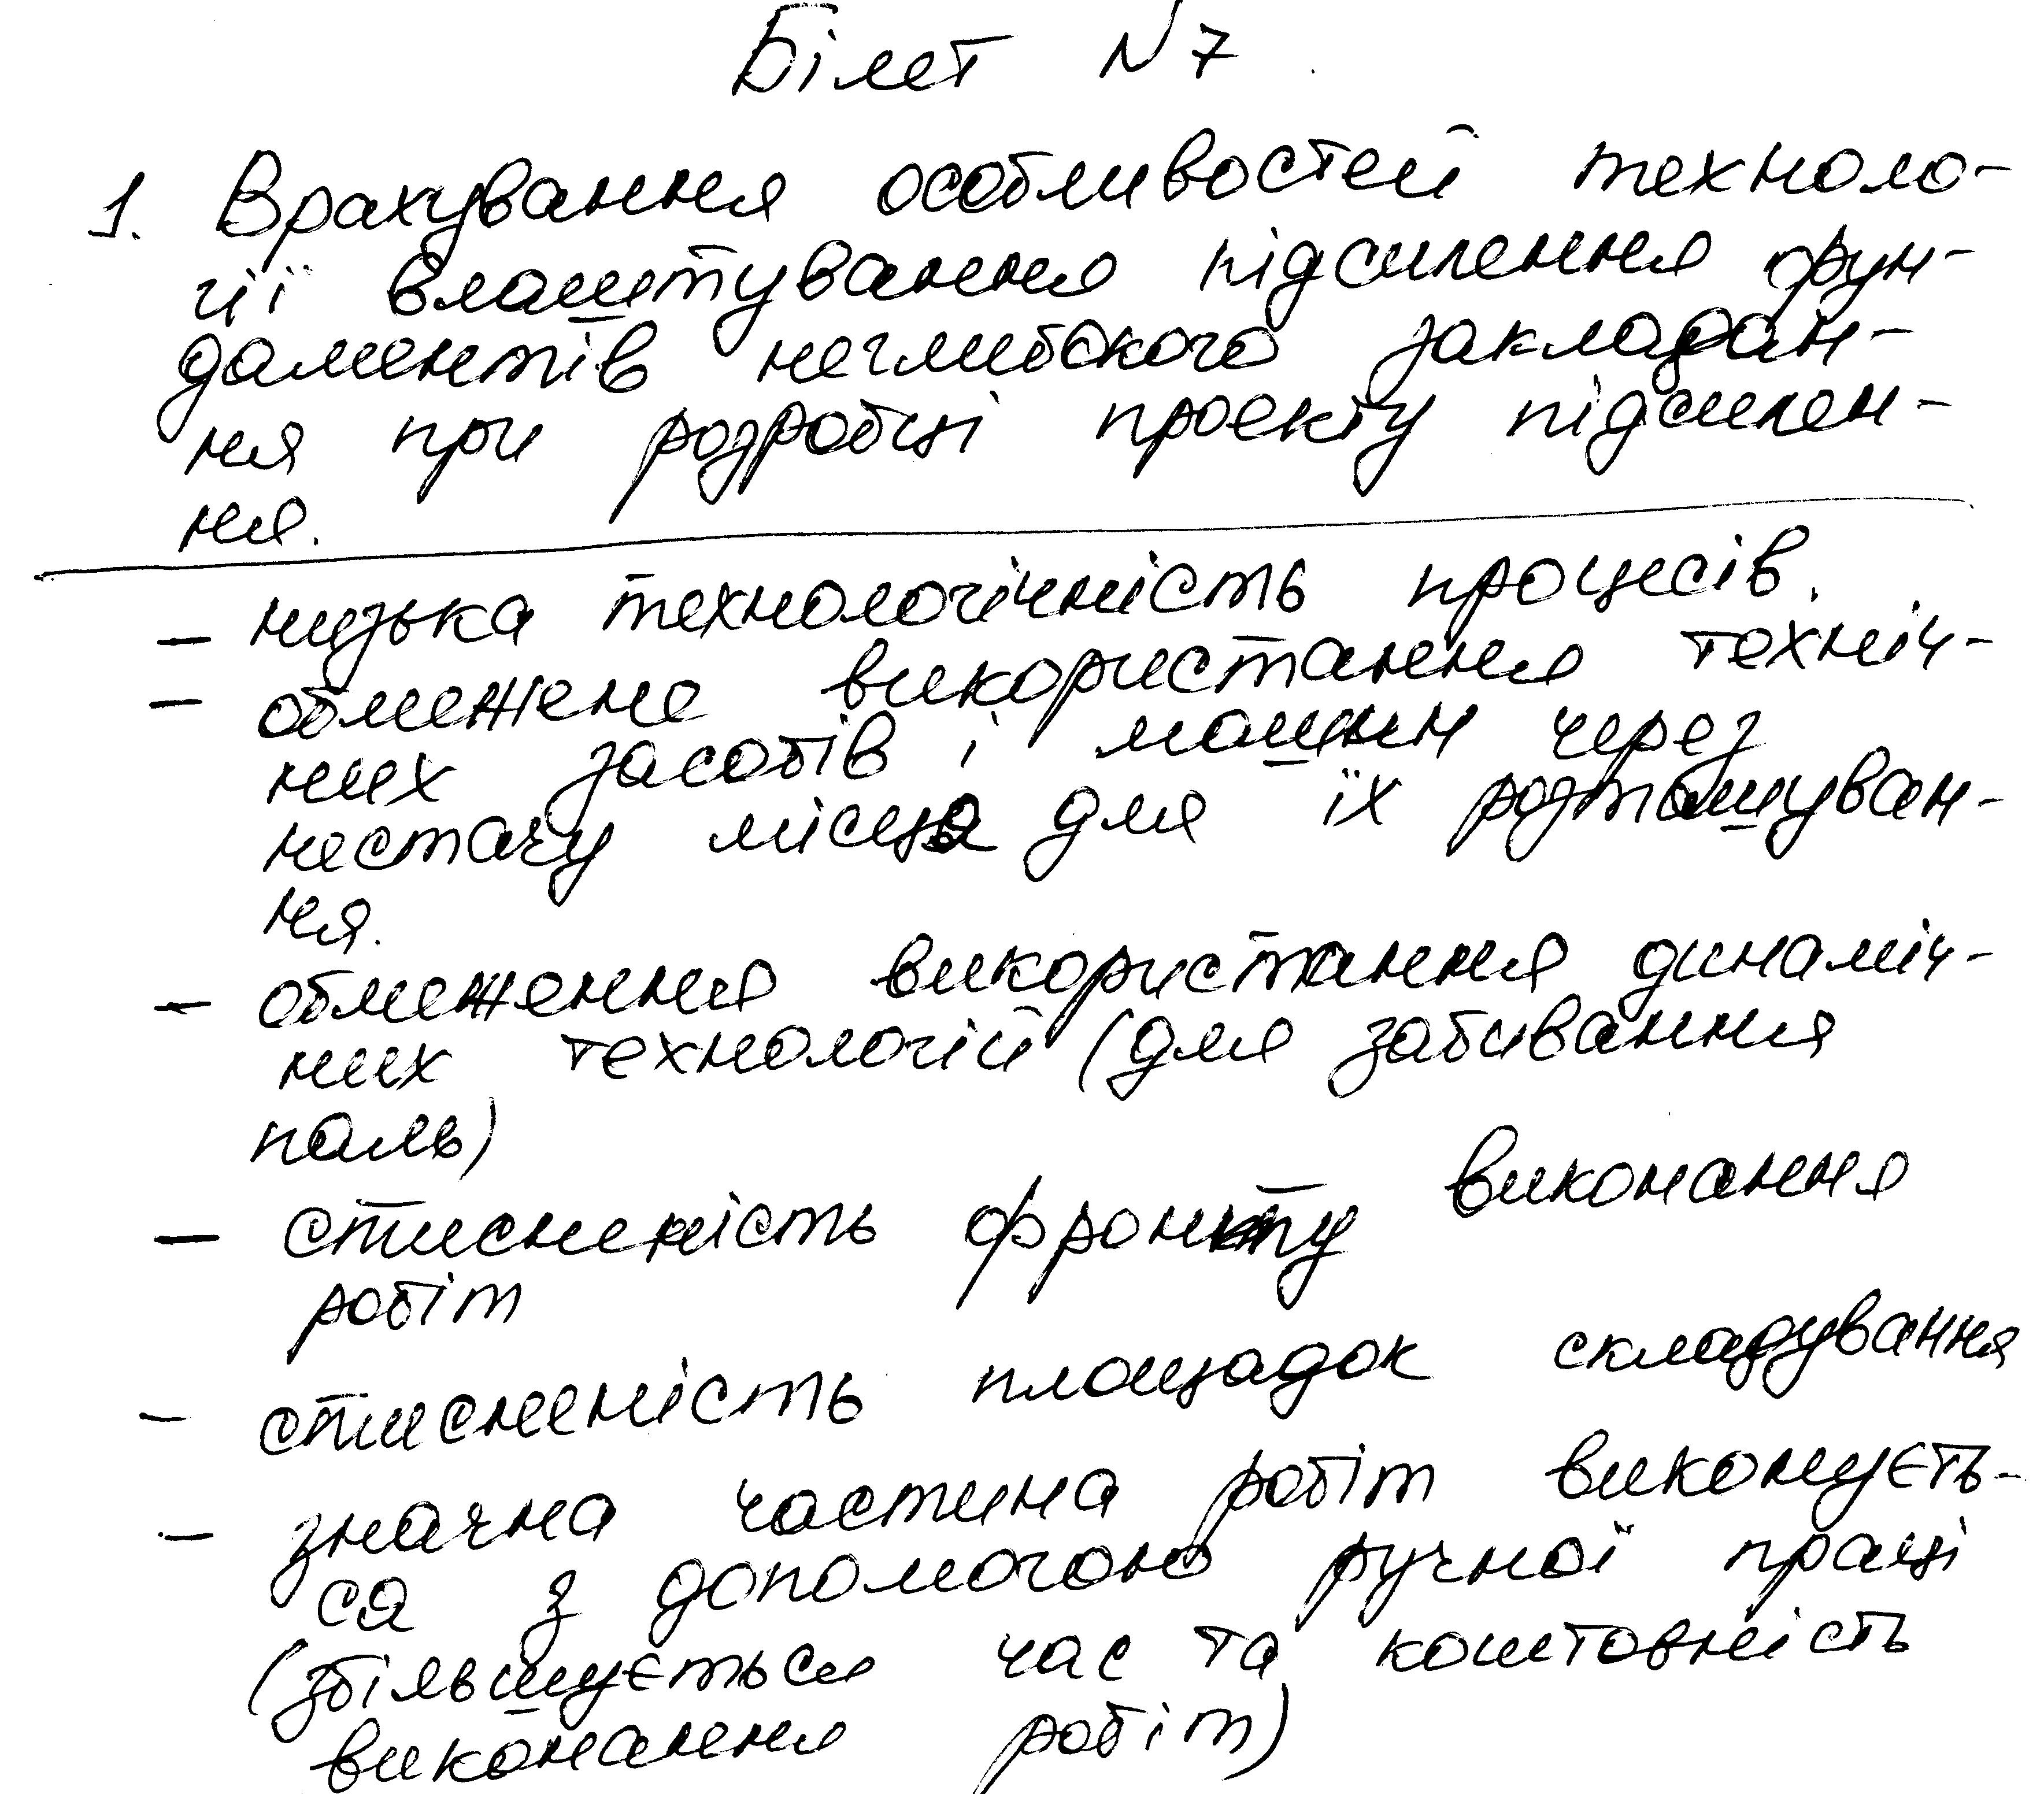 Білет N 7
1. Врахування особливостей техноло-
гії влаштування підсилення фун-
даментів неглибокого закладан-
ня при розробці проекту підсилен-
ня.
- низька технологічність процесів.
- обмежене використання техніч-
них засобів і машин через
нестачу місця для їх розташуван-
ня.
- обмеження використання динаміч-
них технологій (для забивання
паль)
- стисненість фронту виконання
робіт
- стисненість площадок складування
- значна частина робіт виконуєть-
ся з допомогою ручної праці
(збільшується час та коштовність
виконання робіт)